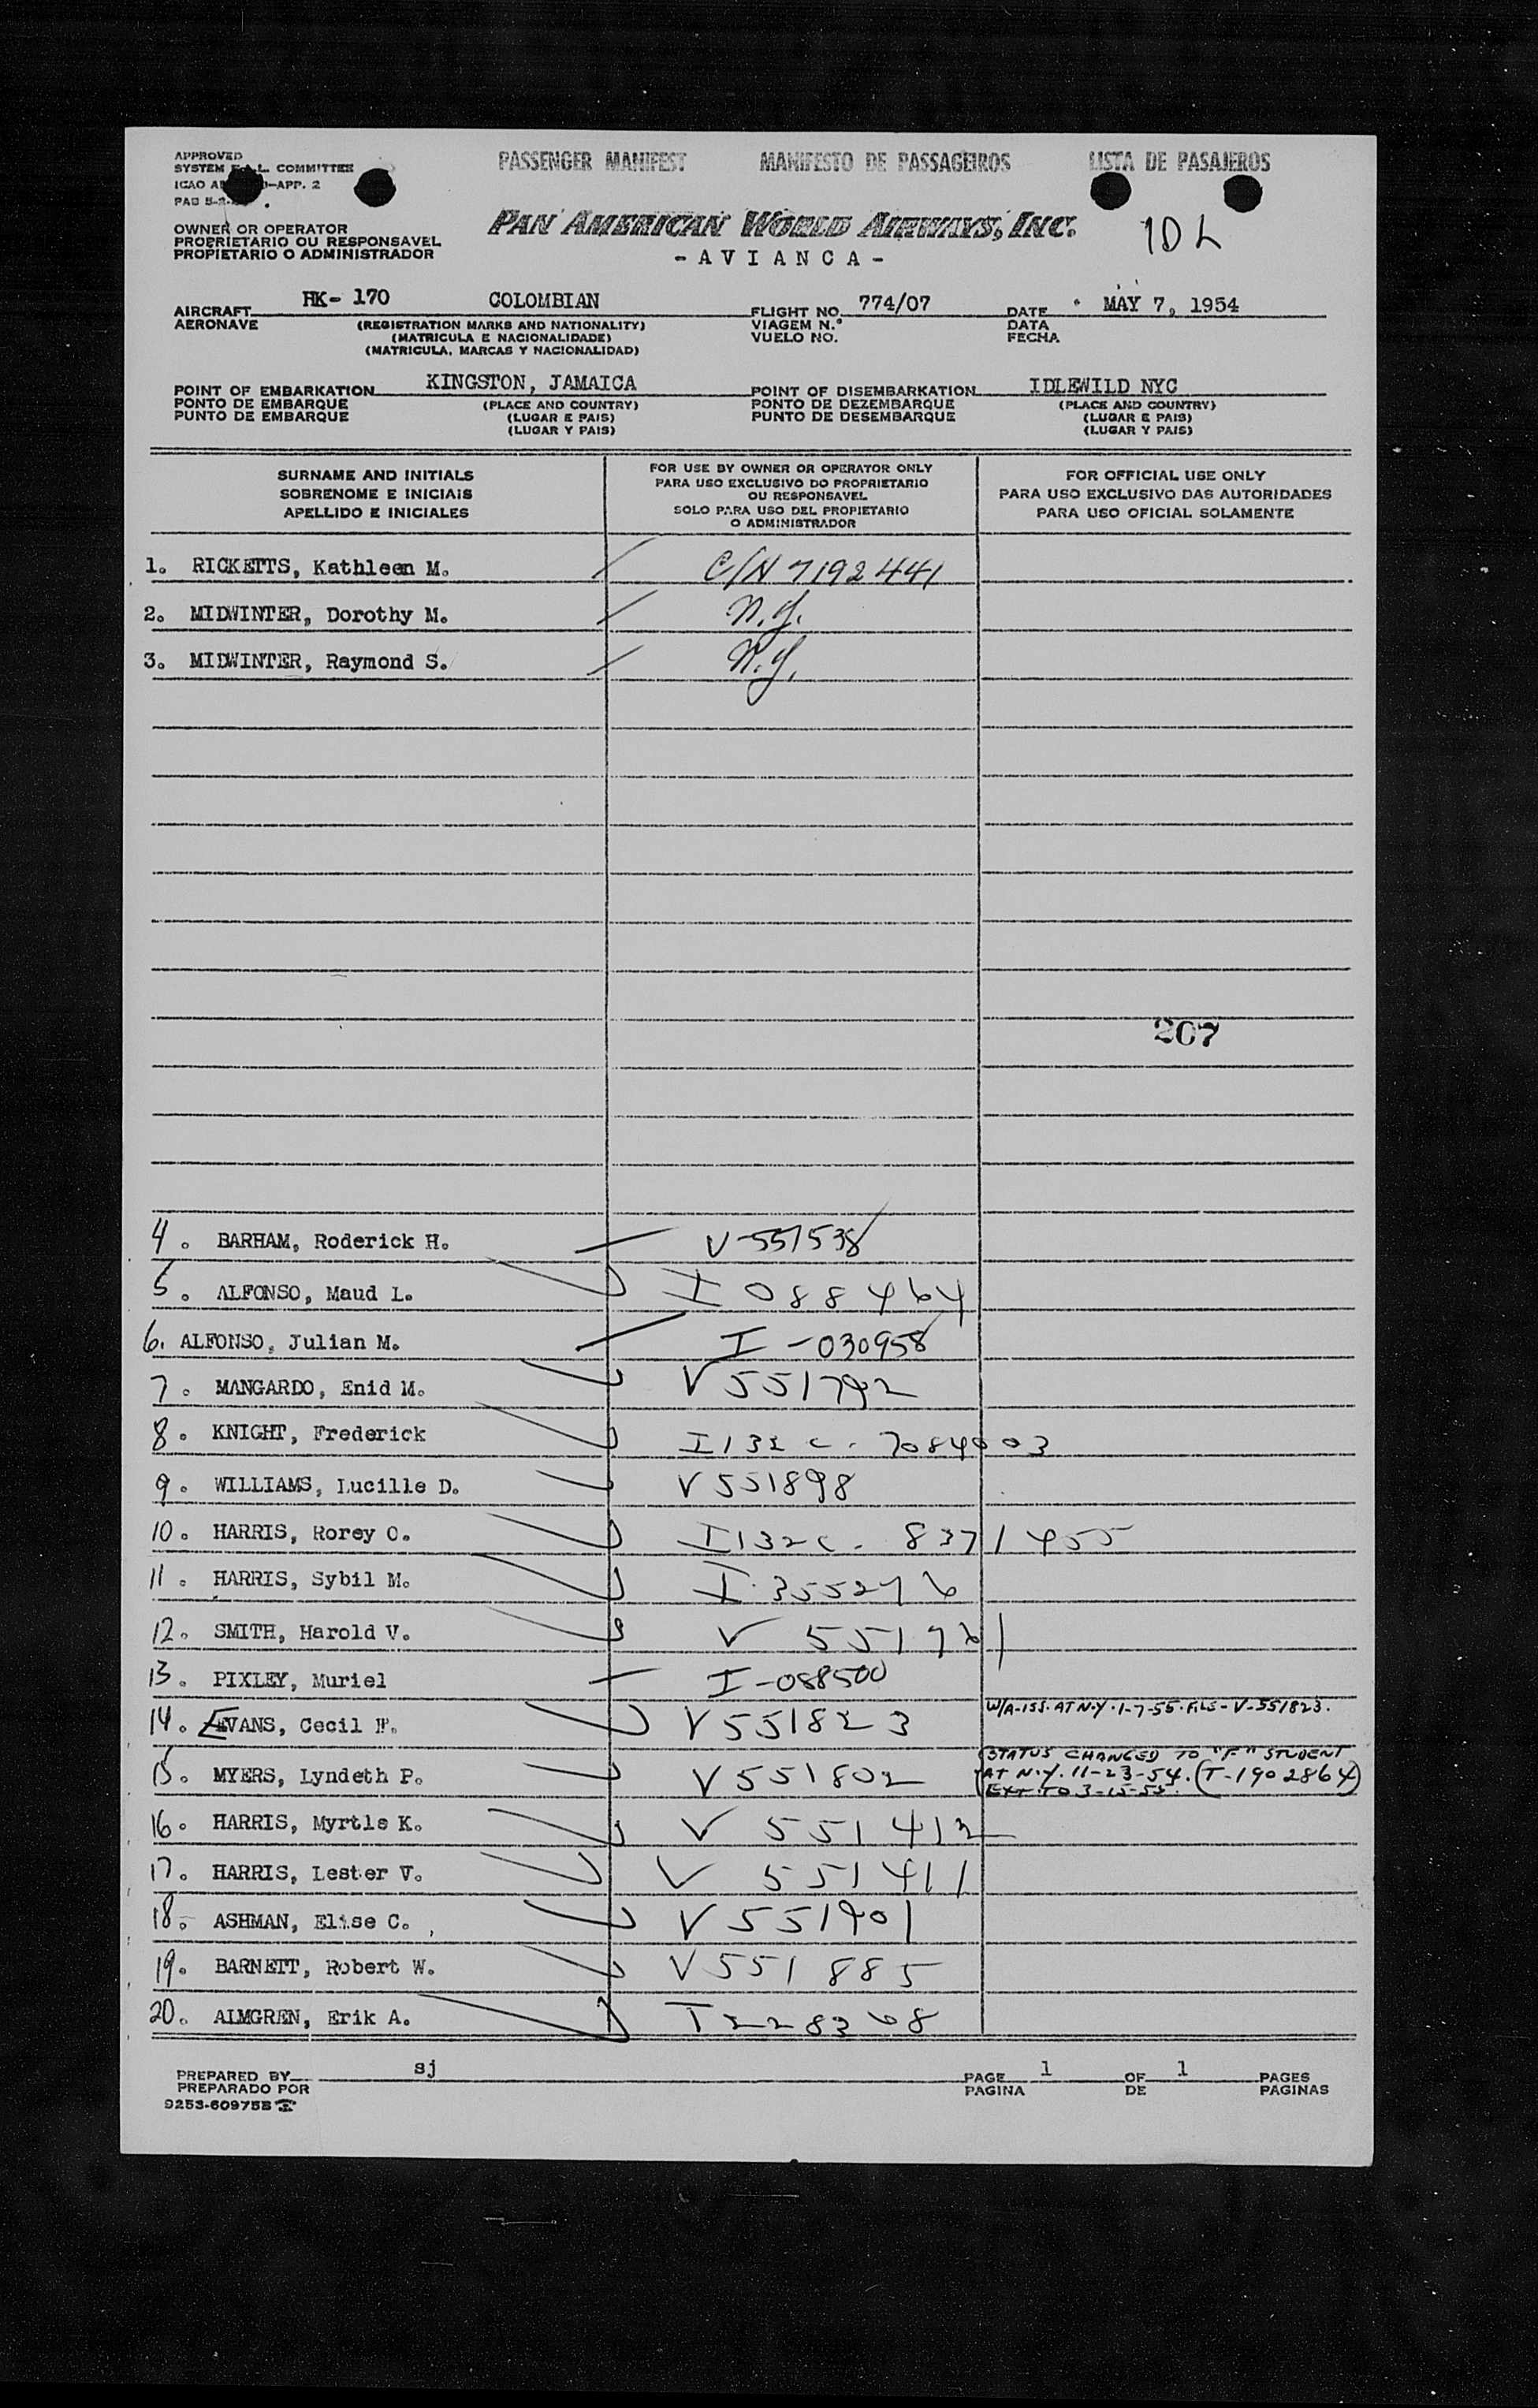 APPROVED
SYSTEM F.A.L. COMMITTEE
ICAO -APP. 2
PAD 5-2-
PASSENGER MANIFEST MANIFESTO DE PASSAGEIROS LISTA DE PASAJEROS
OWNER OR OPERATOR
PROPRIETARIO OU RESPONSAVEL
PROPIETARIO O ADMINISTRADOR
PAN AMERICAN WORLD AIRWAYS, INC.
- A V I A N C A -
IDL
AIRCRAFT HK- 170 COLOMBIAN FLIGHT NO. 774/07 DATE MAY 7, 1954
AERONAVE (REGISTRATION MARKS AND NATIONALITY) VIAGEM N.° DATA
(MATRICULA E NACIONALIDADE) VUELO NO. FECHA
(MATRICULA, MARCAS Y NACIONALIDAD)
POINT OF EMBARKATION KINGSTON, JAMAICA POINT OF DISEMBARKATION IDLEWILD NYC
PONTO DE EMBARQUE (PLACE AND COUNTRY) PONTO DE DEZEMBARQUE (PLACE AND COUNTRY)
PUNTO DE EMBARQUE (LUGAR E PAIS) PUNTO DE DESEMBARQUE (LUGAR E PAIS)
(LUGAR Y PAIS) (LUGAR Y PAIS)
SURNAME AND INITIALS
SOBRENOME E INICIAIS
APELLIDO E INICIALES
FOR USE BY OWNER OR OPERATOR ONLY
PARA USO EXCLUSIVO DO PROPRIETARIO
OU RESPONSAVEL
SOLO PARA USO DEL PROPIETARIO
O ADMINISTRADOR
FOR OFFICIAL USE ONLY
PARA USO EXCLUSIVO DAS AUTORIDADES
PARA USO OFICIAL SOLAMENTE
1. RICKETTS, Kathleen M. C/N 7192441
2. MIDWINTER, Dorothy M. N.Y.
3. MIDWINTER, Raymond S. N.Y.
207
4. BARHAM, Roderick H. V-551538
5. ALFONSO, Maud L. I 088464
6. ALFONSO, Julian M. I-030958
7. MANGARDO, Enid M. V551792
8. KNIGHT, Frederick I132 C. 7084003
9. WILLIAMS, Lucille D. V551898
10. HARRIS, Rorey O. I132C. 8371455
11. HARRIS, Sybil M. I.355276
12. SMITH, Harold V. V 551761
13. PIXLEY, Muriel I-088500
14. EVANS, Cecil H. V551823 W/A-ISS. AT N.Y. 1-7-55. FILE-V-551823.
15. MYERS, Lyndeth P. V551802 (STATUS CHANGED TO "F" STUDENT
AT N.Y. 11-23-54. (T-1902864)
EXT. TO 3-15-55.
16. HARRIS, Myrtle K. V 551412
17. HARRIS, Lester V. V 551411
18. ASHMAN, Elise C. V551901
19. BARNETT, Robert W. V551885
20. ALMGREN, Erik A. T228308
PREPARED BY sj PAGE 1 OF 1 PAGES
PREPARADO POR PAGINA DE PAGINAS
9253-60975B